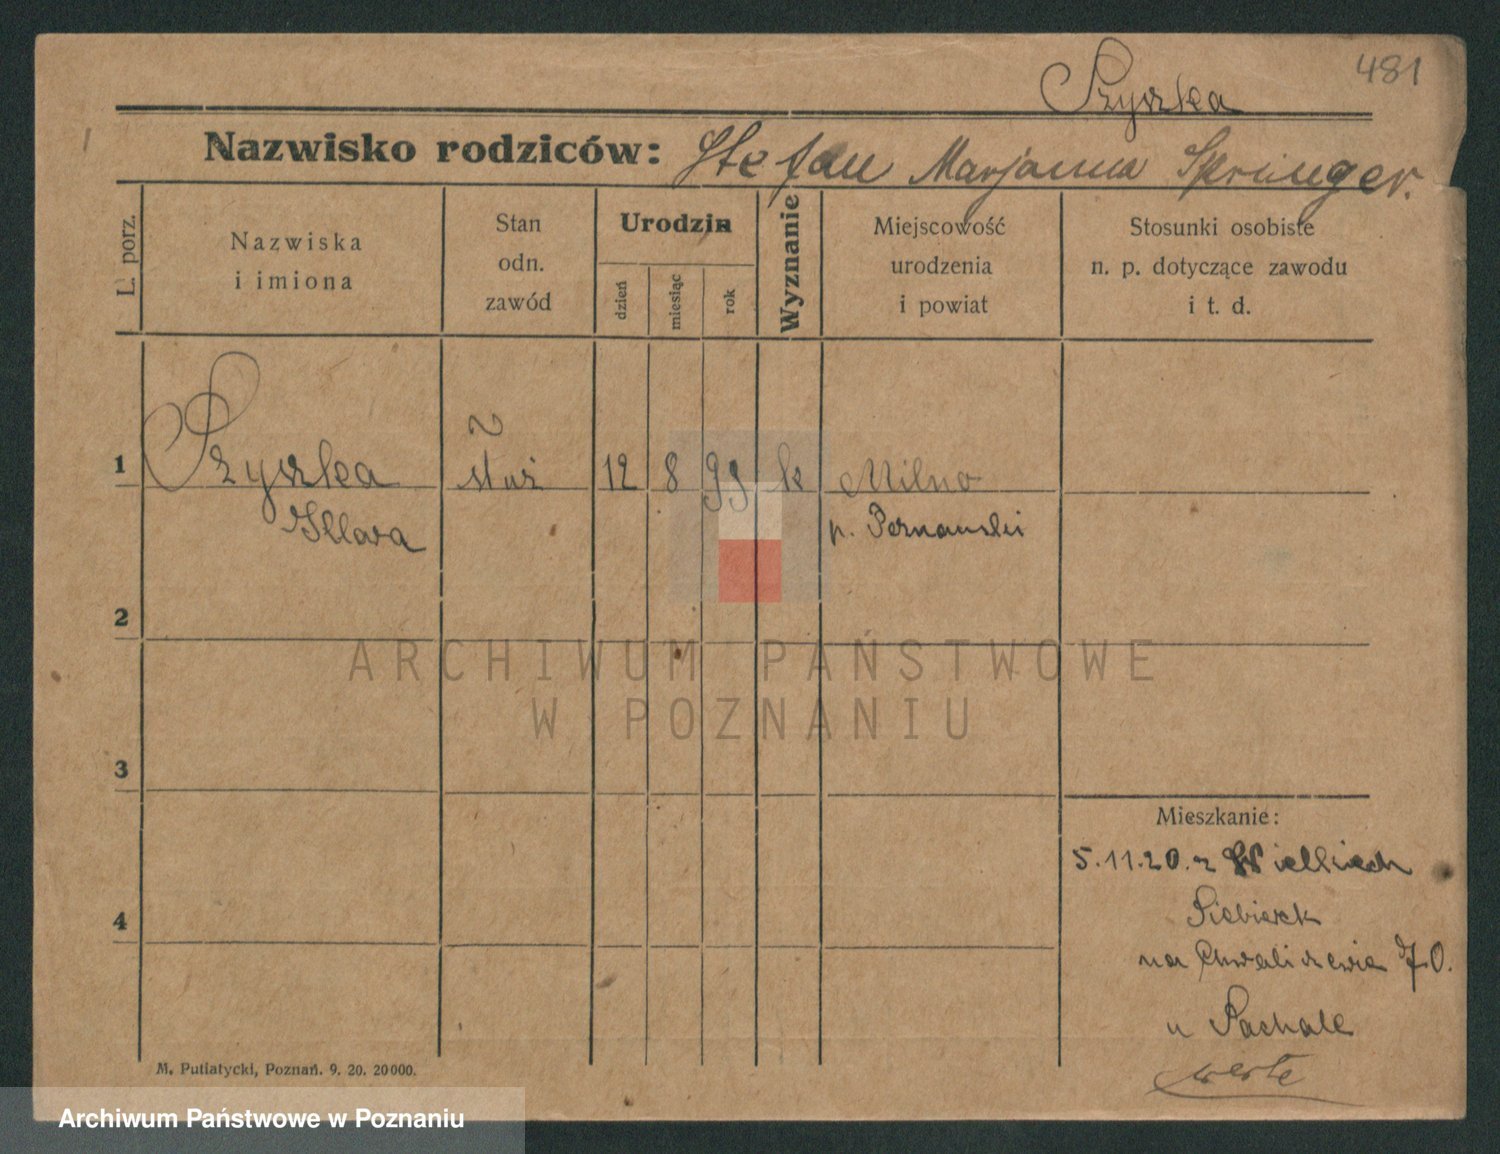 481
Szyszka
Nazwisko rodziców: Stefan Marjanna Springer.
L. porz.
Nazwiska
i imiona
Stan
odn.
zawód
Urodzin
dzień
miesiąc
rok
Wyznanie
Miejscowość
urodzenia
i powiat
Stosunki osobiste
n. p. dotyczące zawodu
i t. d.
1 Szyszka służ 12 8 99 k Milno
Klara p. Poznański
2
3
4
Mieszkanie:
5.11.20. z
na Chwaliszewie 70.
u
verte
M. Putiatycki, Poznań. 9. 20. 20000.
ARCHIWUM PAŃSTWOWE
W POZNANIU
Archiwum Państwowe w Poznaniu